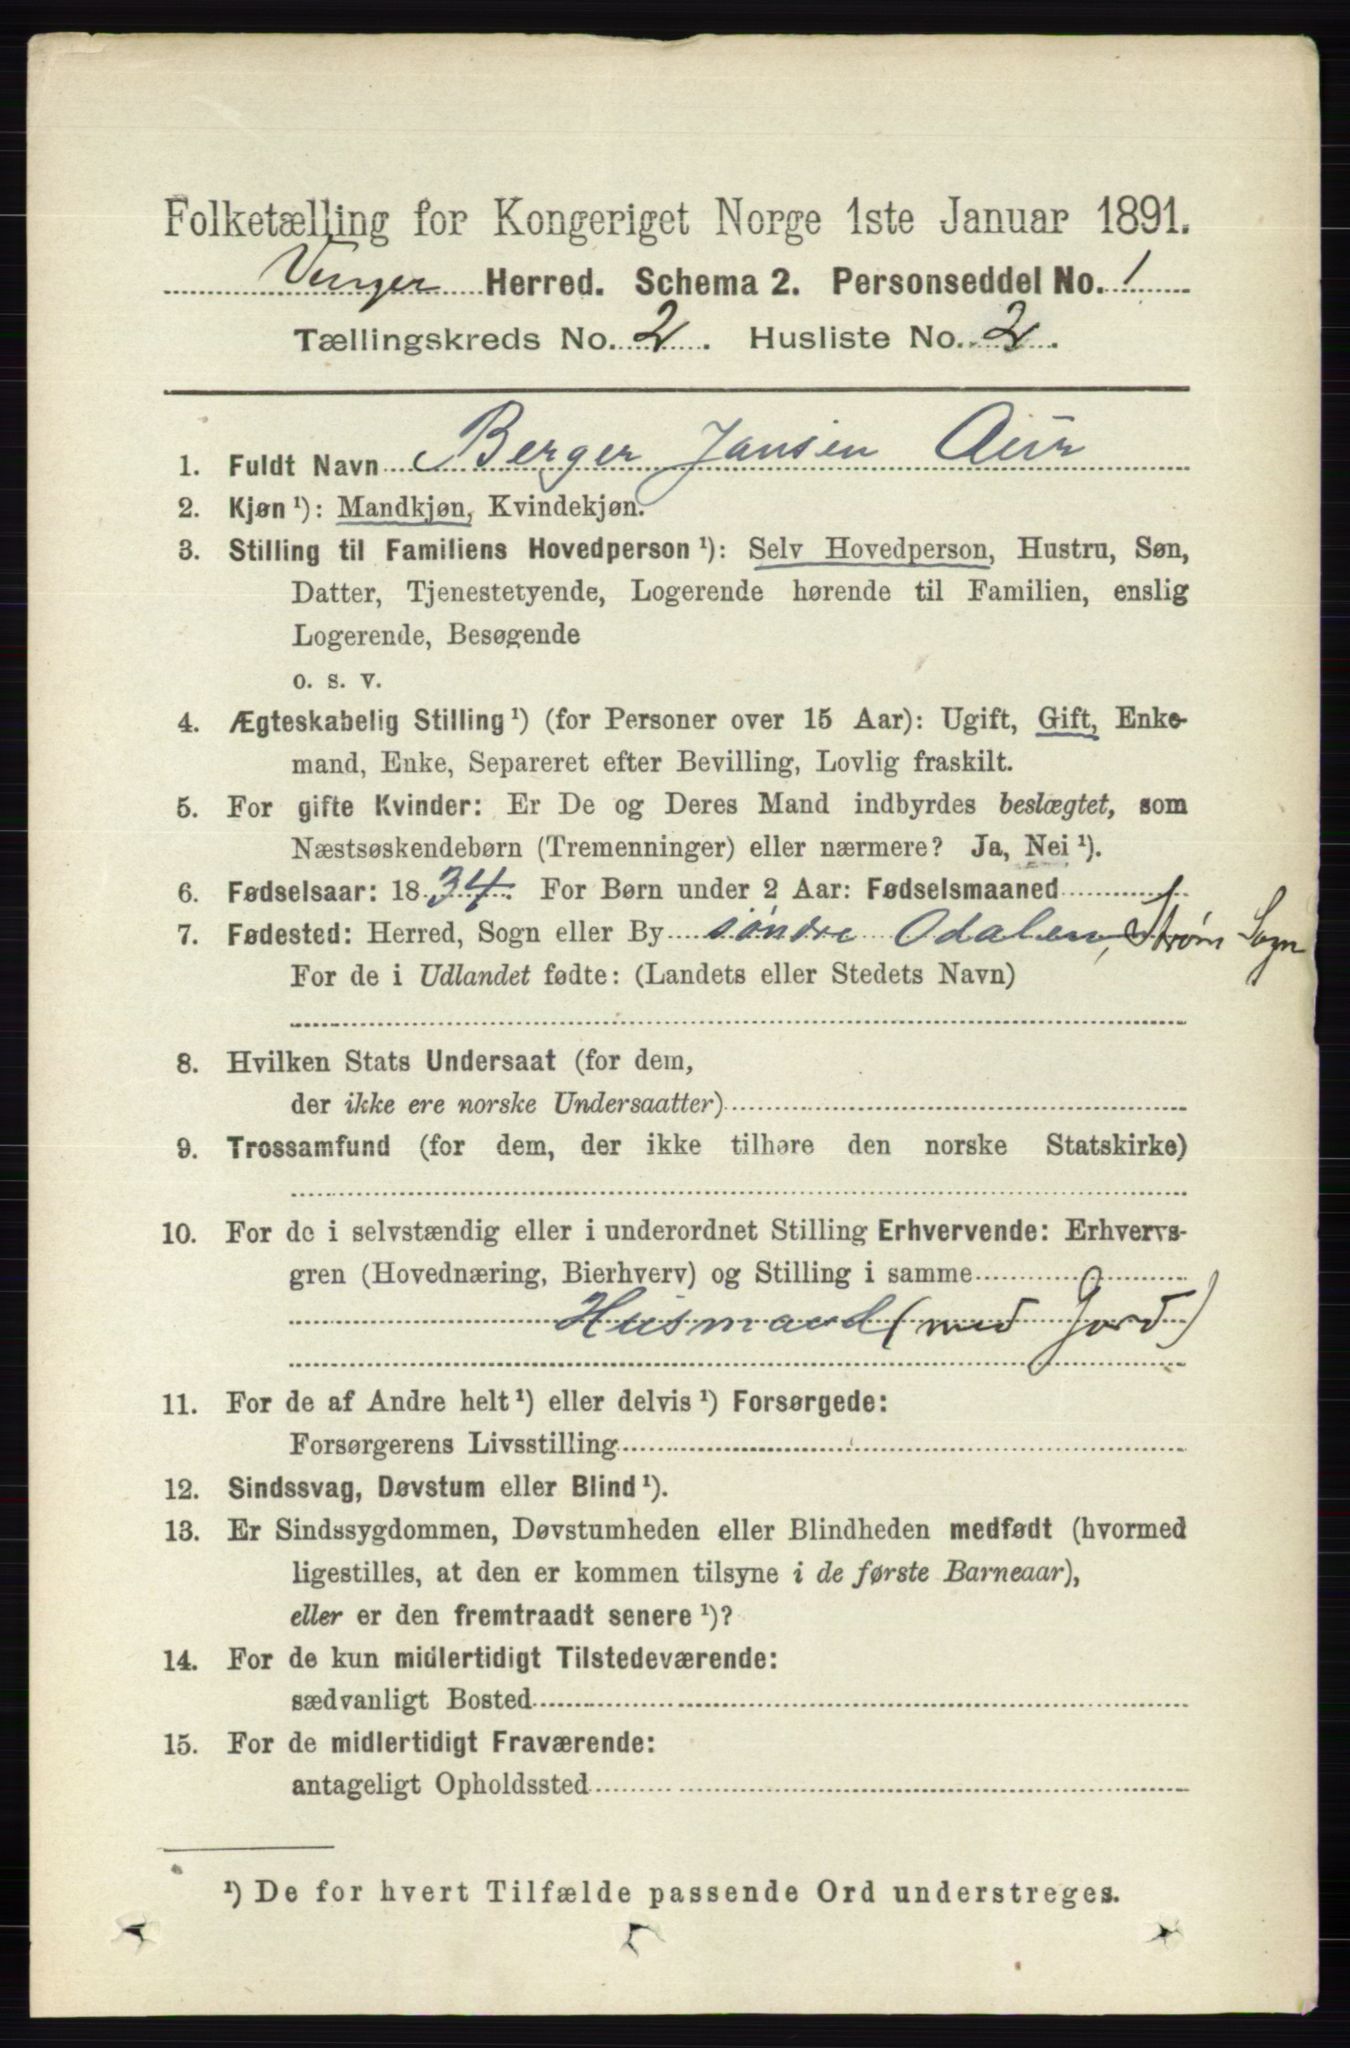 Folketælling for Kongeriget Norge 1ste Januar 1891.
Vinger Herred. Schema 2. Personseddel No. 1
Tællingskreds No. 2. Husliste No. 2.
1. Fuldt Navn Berger Jansen Aur
2. Kjøn ¹): Mandkjøn, Kvindekjøn.
3. Stilling til Familiens Hovedperson ¹): Selv Hovedperson, Hustru, Søn,
Datter, Tjenestetyende, Logerende hørende til Familien, enslig
Logerende, Besøgende
o. s. v.
4. Ægteskabelig Stilling ¹) (for Personer over 15 Aar): Ugift, Gift, Enke-
mand, Enke, Separeret efter Bevilling, Lovlig fraskilt.
5. For gifte Kvinder: Er De og Deres Mand indbyrdes beslægtet, som
Næstsøskendebørn (Tremenninger) eller nærmere? Ja, Nei ¹).
6. Fødselsaar: 1834. For Børn under 2 Aar: Fødselsmaaned
7. Fødested: Herred, Sogn eller By søndre Odalen, Strøm Sogn
For de i Udlandet fødte: (Landets eller Stedets Navn)
8. Hvilken Stats Undersaat (for dem,
der ikke ere norske Undersaatter)
9. Trossamfund (for dem, der ikke tilhøre den norske Statskirke)
10. For de i selvstændig eller i underordnet Stilling Erhvervende: Erhvervs-
gren (Hovednæring, Bierhverv) og Stilling i samme
Husmand (med Jord)
11. For de af Andre helt ¹) eller delvis ¹) Forsørgede:
Forsørgerens Livsstilling
12. Sindssvag, Døvstum eller Blind ¹).
13. Er Sindssygdommen, Døvstumheden eller Blindheden medfødt (hvormed
ligestilles, at den er kommen tilsyne i de første Barneaar),
eller er den fremtraadt senere ¹)?
14. For de kun midlertidigt Tilstedeværende:
sædvanligt Bosted
15. For de midlertidigt Fraværende:
antageligt Opholdssted
¹) De for hvert Tilfælde passende Ord understreges.